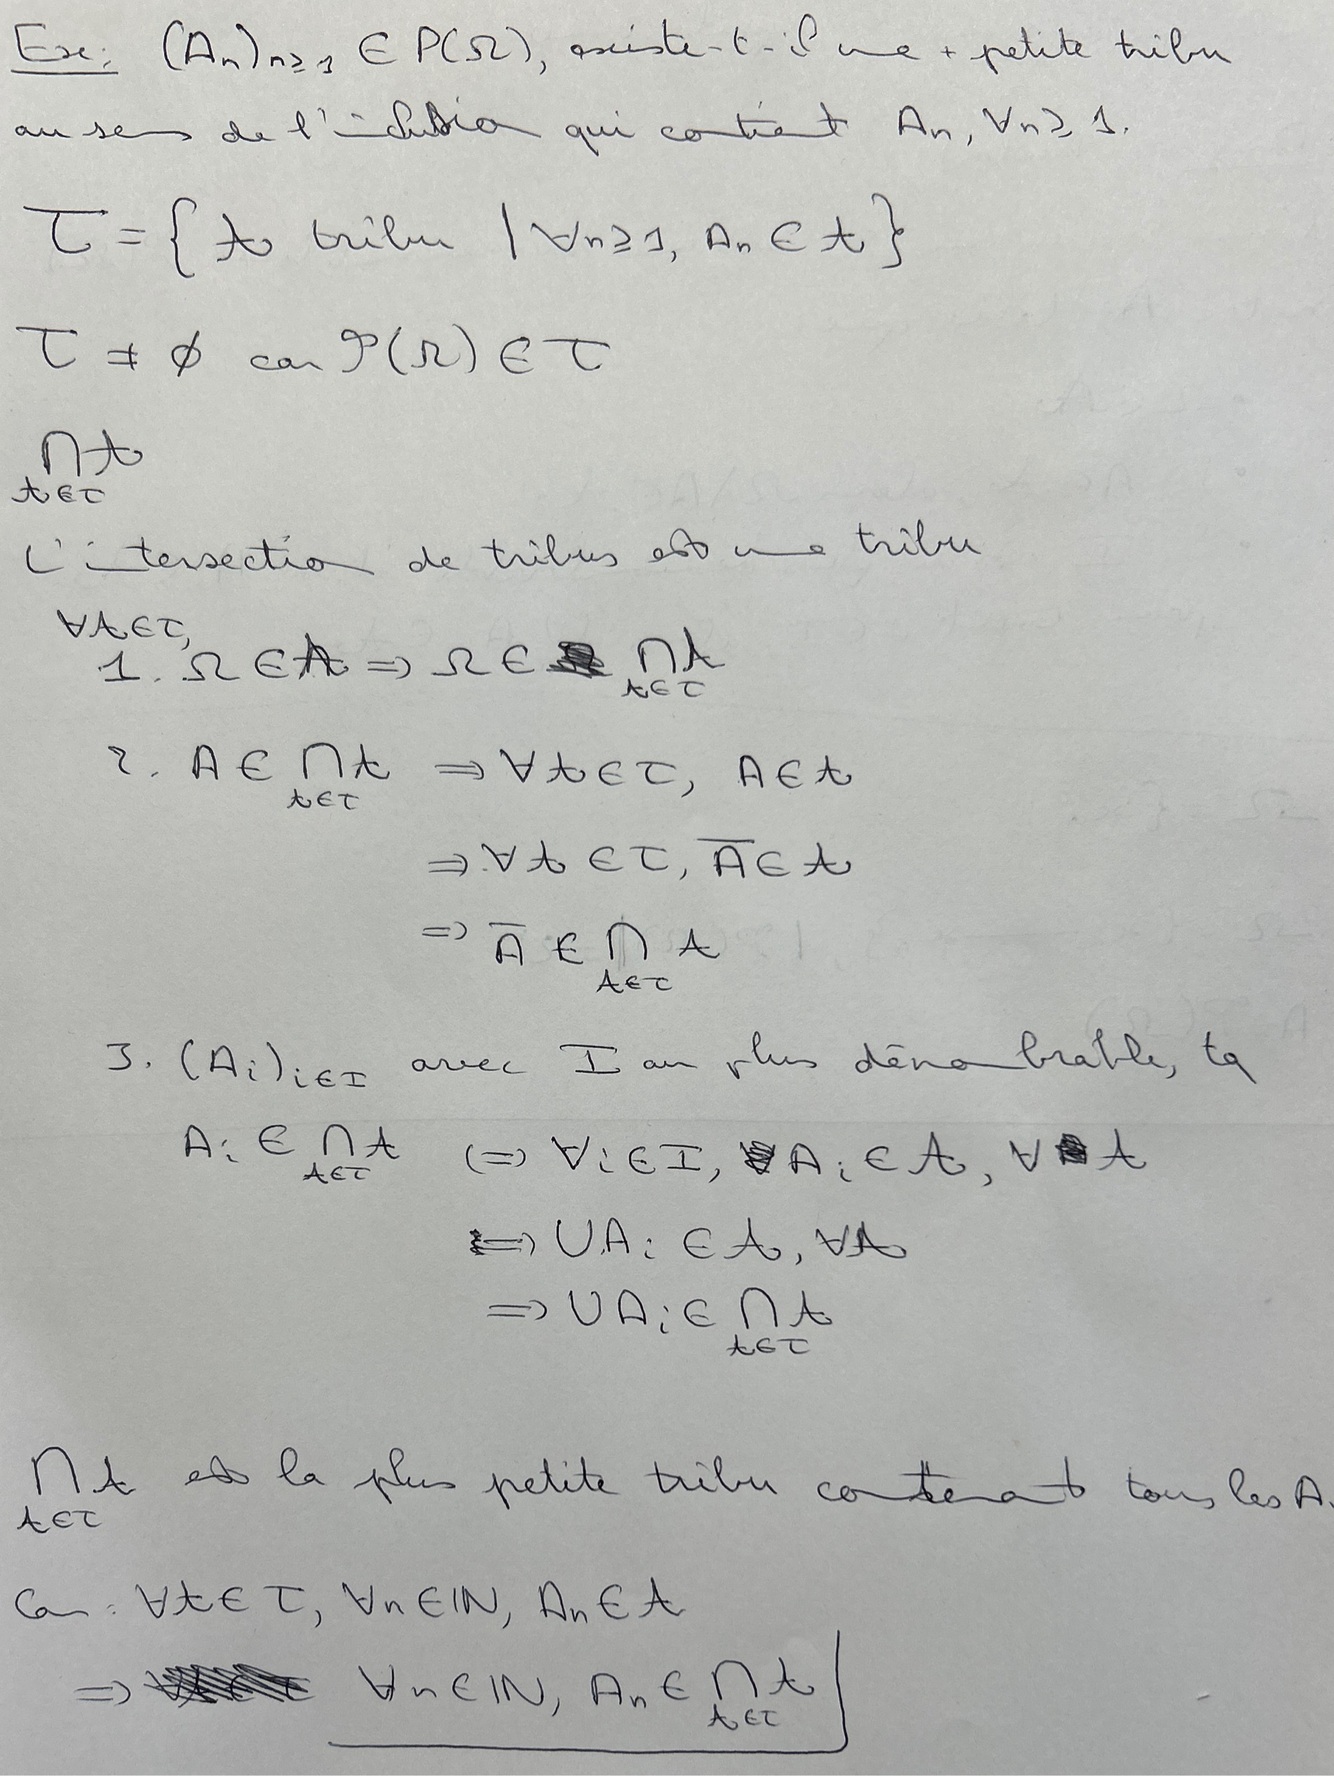 Exe: (Aₙ)ₙ≥₁ ∈ P(Ω), existe-t-il une + petite tribu
au sens de l'inclusion qui contient Aₙ, ∀n≥1.
τ = { 𝒜 tribu | ∀n≥1, Aₙ ∈ 𝒜 }
τ ≠ ∅ car 𝒫(Ω) ∈ τ
⋂ 𝒜
𝒜∈τ
L'intersection de tribus est une tribu
∀𝒜∈τ,
1. Ω ∈ 𝒜 => Ω ∈ ⋂ 𝒜
𝒜∈τ
2. A ∈ ⋂ 𝒜 => ∀𝒜∈τ, A∈𝒜
𝒜∈τ
=> ∀𝒜 ∈ τ, A̅ ∈ 𝒜
=> A̅ ∈ ⋂ 𝒜
𝒜∈τ
3. (Aᵢ)ᵢ∈I avec I au plus dénombrable, tq
Aᵢ ∈ ⋂ 𝒜 <=> ∀i∈I, Aᵢ ∈ 𝒜, ∀𝒜
𝒜∈τ
=> ∪Aᵢ ∈ 𝒜, ∀𝒜
=> ∪Aᵢ ∈ ⋂ 𝒜
𝒜∈τ
⋂ 𝒜 est la plus petite tribu contenant tous les A
𝒜∈τ
Car : ∀𝒜∈τ, ∀n∈ℕ, Aₙ∈𝒜
=> ∀n∈ℕ, Aₙ ∈ ⋂ 𝒜
𝒜∈τ